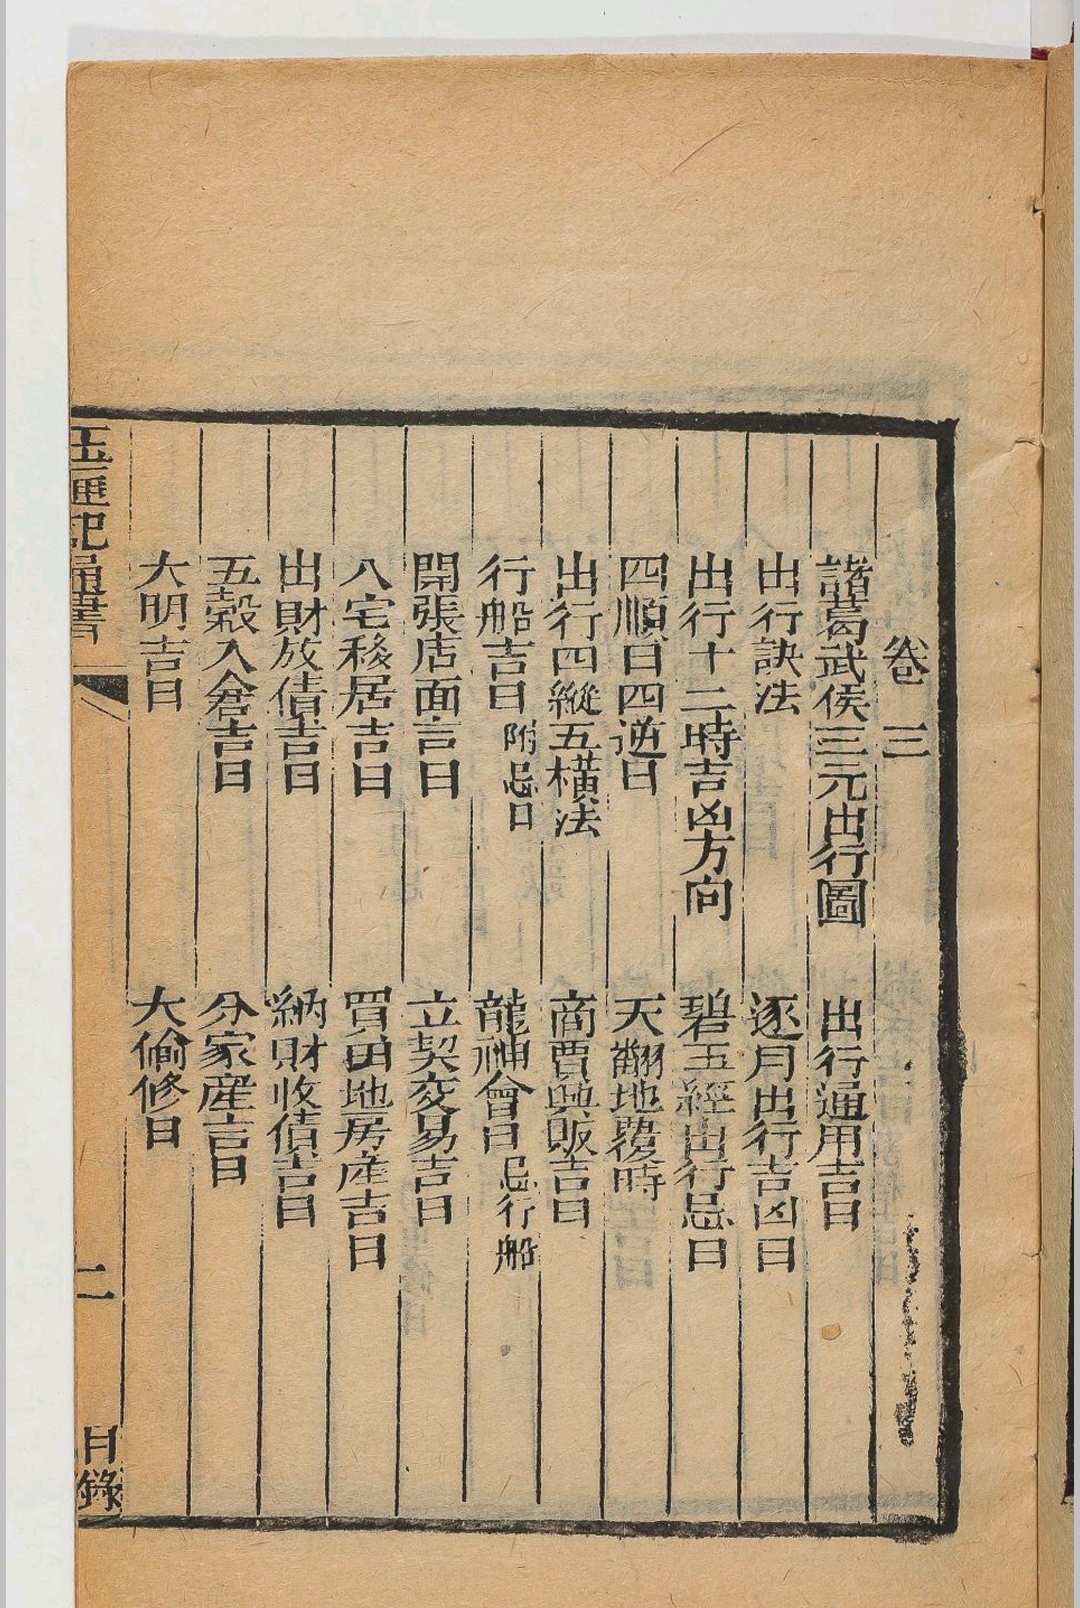 卷三
諸葛武侯三元出行圖　出行通用吉日
出行訣法　逐月出行吉凶日
出行十二時吉凶方向　碧玉經出行忌日
四順日四逆日　天翻地覆時
出行四縱五橫法　商賈興販吉日
行船吉日附忌日　龍神會日忌行船
開張店面吉日　立契交易吉日
八宅移居吉日　買田地房產吉日
出財放債吉日　納財收債吉日
五穀入倉吉日　分家產吉日
大明吉日　大偷修日
玉匣記通書　二　目錄